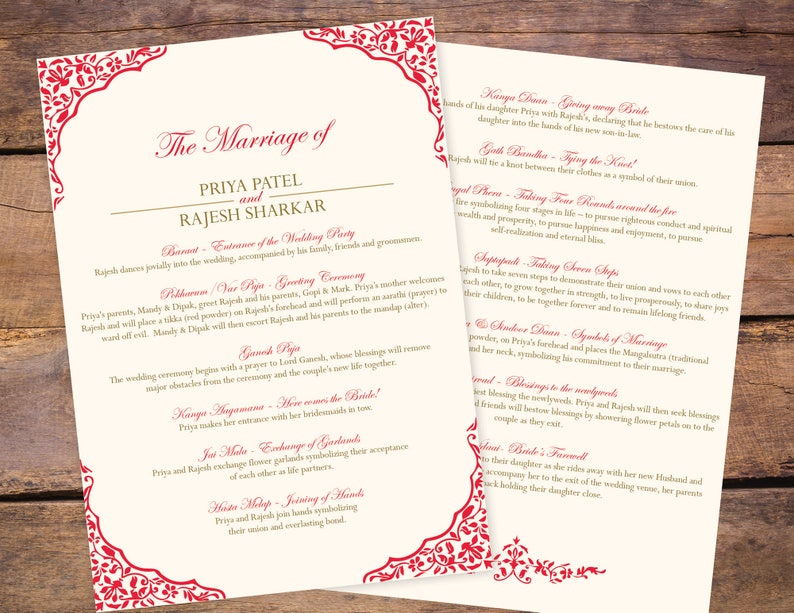 The Marriage of
PRIYA PATEL
and
RAJESH SHARKAR
Baraat - Entrance of the Wedding Party
Rajesh dances jovially into the wedding, accompanied by his family, friends and groomsmen.
Pokhvanu / Var Puja - Greeting Ceremony
Priya's parents, Mandy & Dipak, greet Rajesh and his parents, Gopi & Mark. Priya's mother welcomes
Rajesh and will place a tikka (red powder) on Rajesh's forehead and will perform an aarathi (prayer) to
ward off evil. Mandy & Dipak will then escort Rajesh and his parents to the mandap (alter).
Ganesh Puja
The wedding ceremony begins with a prayer to Lord Ganesh, whose blessings will remove
major obstacles from the ceremony and the couple's new life together.
Kanya Aagamana - Here comes the Bride!
Priya makes her entrance with her bridesmaids in tow.
Jai Mala - Exchange of Garlands
Priya and Rajesh exchange flower garlands symbolizing their acceptance
of each other as life partners.
Hasta Melap - Joining of Hands
Priya and Rajesh join hands symbolizing
their union and everlasting bond.
Kanya Daan - Giving away Bride
hands of his daughter Priya with Rajesh's, declaring that he bestows the care of his
daughter into the hands of his new son-in-law.
Gath Bandha - Tying the Knot!
Rajesh will tie a knot between their clothes as a symbol of their union.
Phera - Taking Four Rounds around the fire
fire symbolizing four stages in life – to pursue righteous conduct and spiritual
wealth and prosperity, to pursue happiness and enjoyment, to pursue
self-realization and eternal bliss.
Saptapadi -Taking Seven Steps
Rajesh to take seven steps to demonstrate their union and vows to each other
each other, to grow together in strength, to live prosperously, to share joys
their children, to be together forever and to remain lifelong friends.
& Sindoor Daan - Symbols of Marriage
powder, on Priya's forehead and places the Mangalsutra (traditional
and her neck, symbolizing his commitment to their marriage.
- Blessings to the newlyweds
best blessing the newlyweds. Priya and Rajesh will then seek blessings
and friends will bestow blessings by showering flower petals on to the
couple as they exit.
- Bride's Farewell
to their daughter as she rides away with her new Husband and
accompany her to the exit of the wedding venue, her parents
back holding their daughter close.